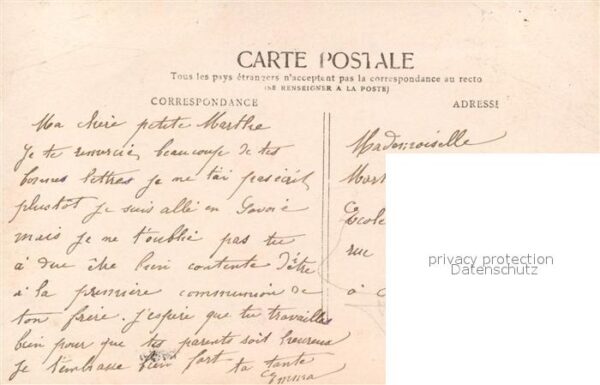 CARTE POSTALE
Tous les pays étrangers n'acceptent pas la correspondance au recto
(SE RENSEIGNER A LA POSTE)
CORRESPONDANCE
ADRESSE
Ma chère petite Marthe
Je te remercie beaucoup de tes
bonnes lettres je ne t'ai pas écrit
plustot je suis allé en Savoie
mais je ne t'oublie pas tu
à due être bien contente d'être
à la première communion de
ton frère. j'espère que tu travailles
bien pour que tes parents soit heureux
je t'embrasse bien fort ta tante
Emma
Mademoiselle
Mart
Ecole
rue
à
privacy protection
Datenschutz